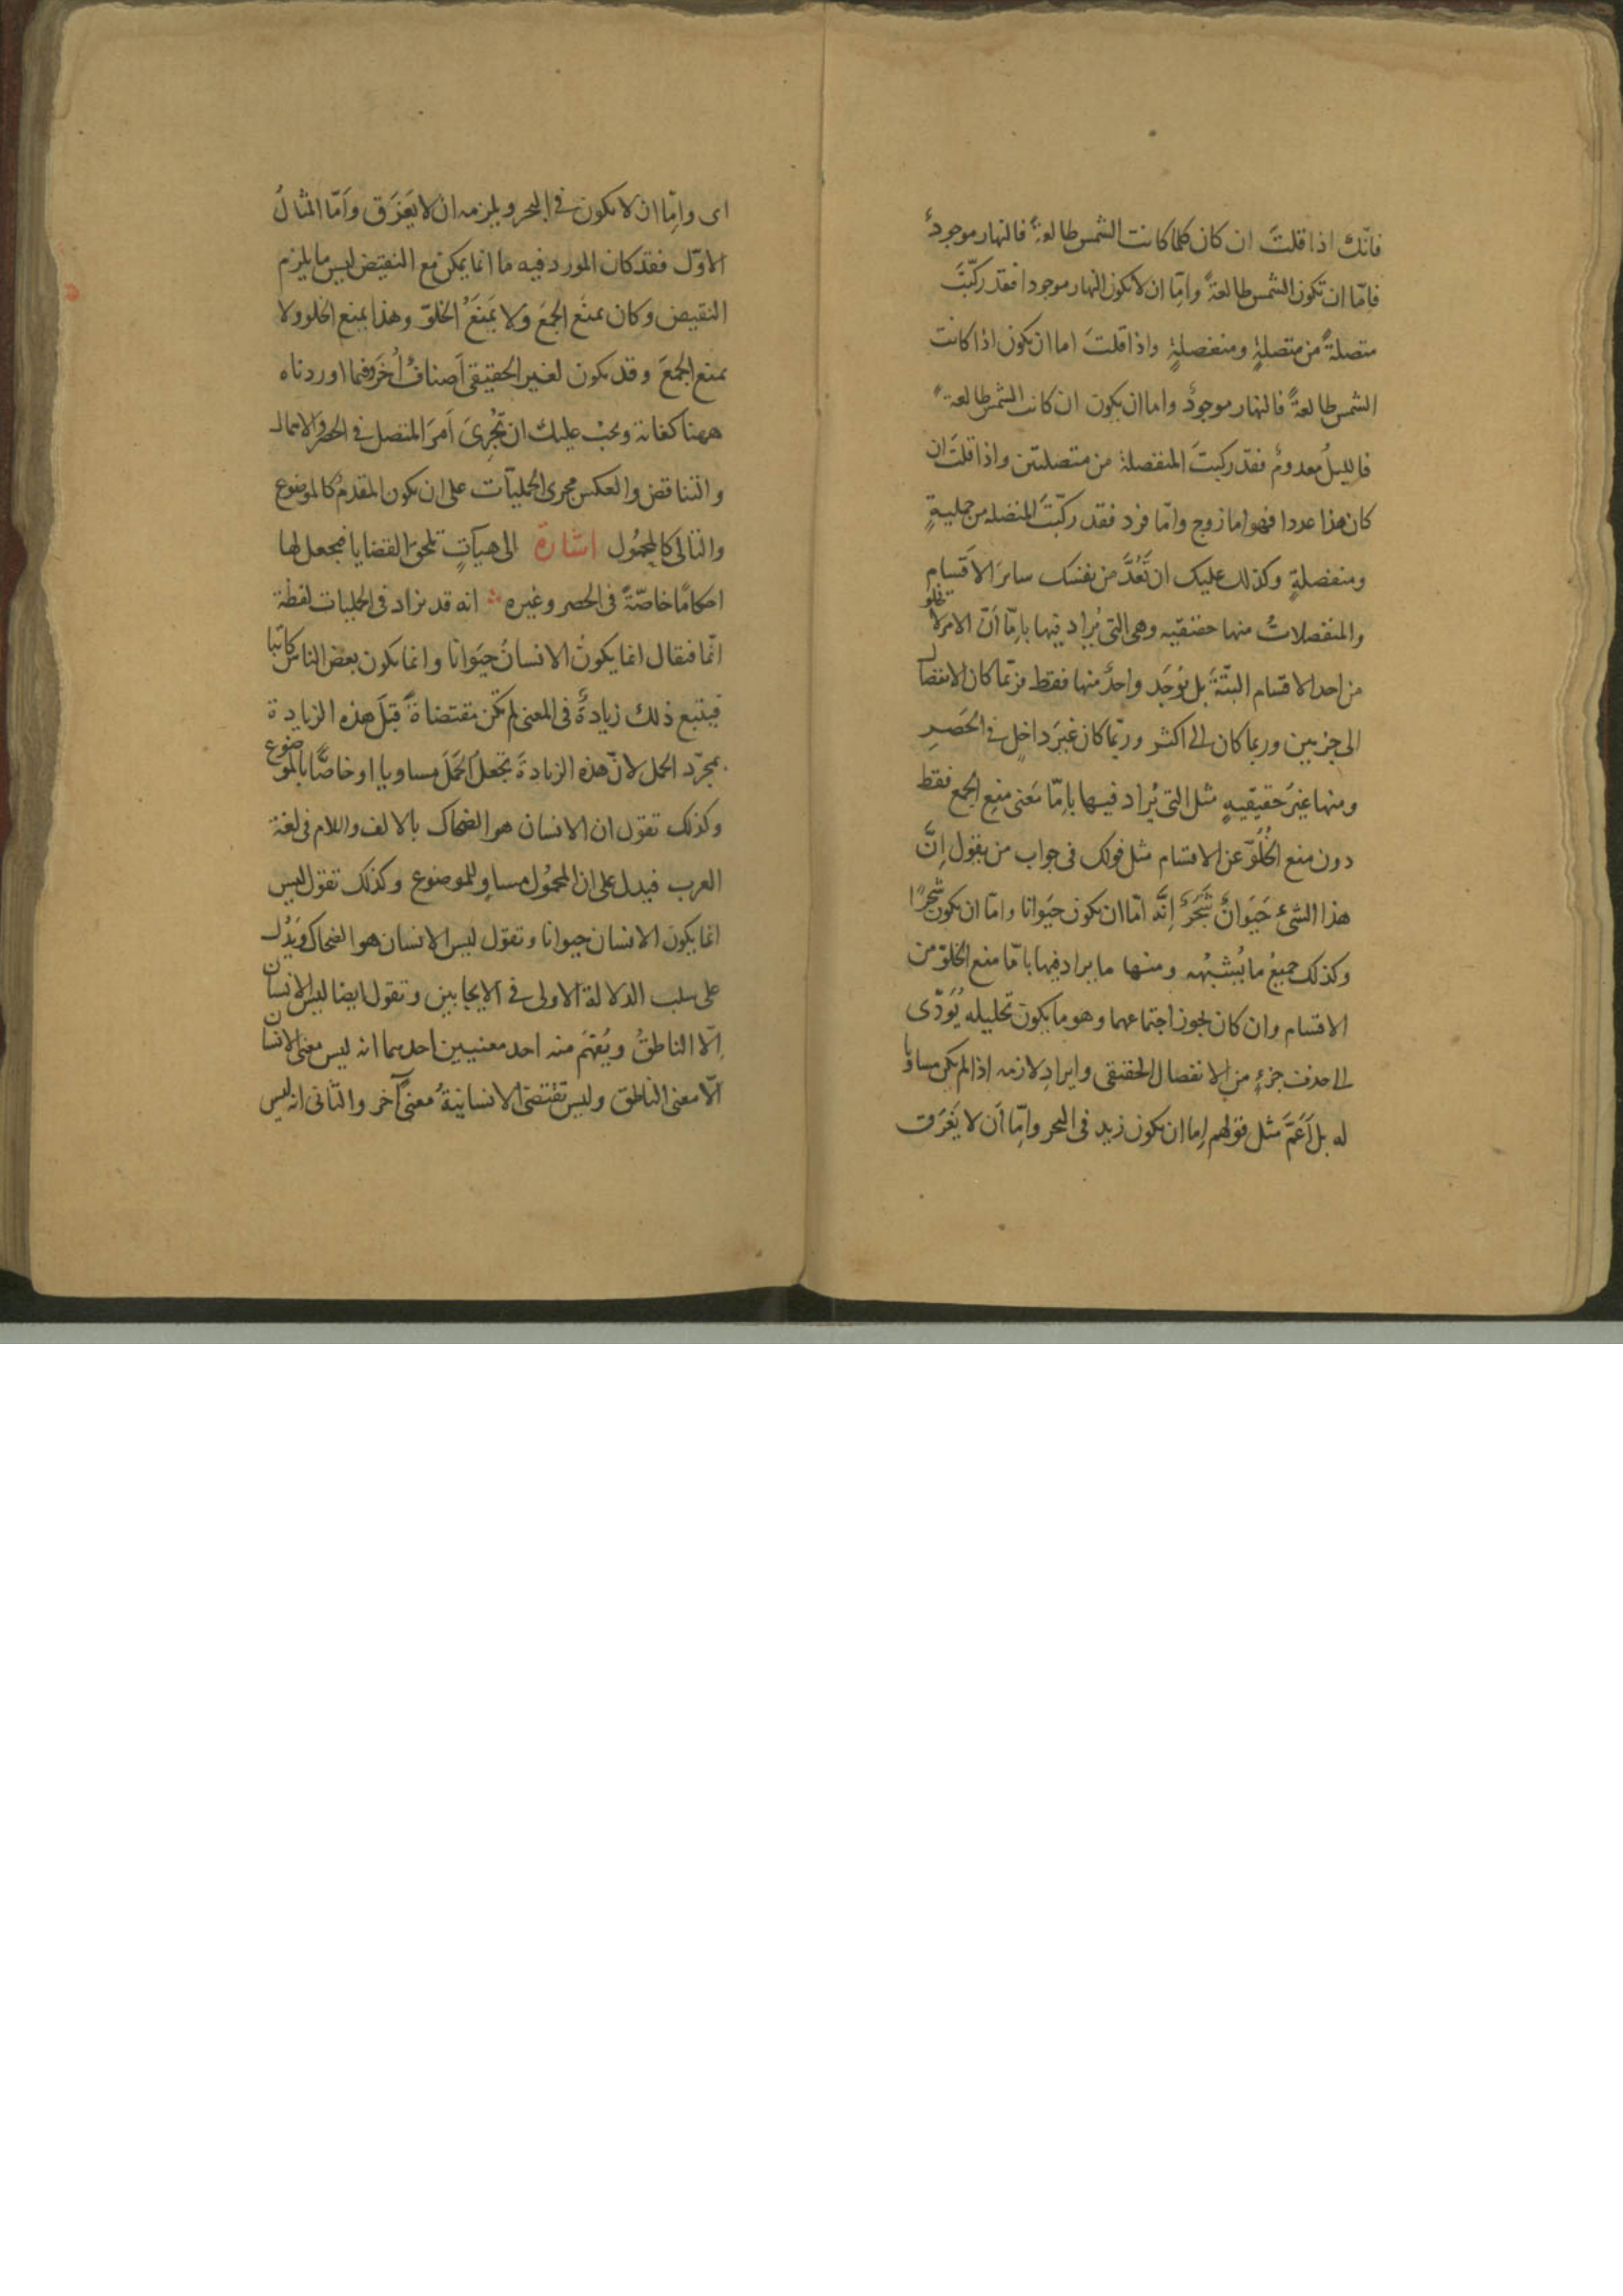 فانّك اذا قلتَ ان كان كلما كانت الشمس طالعةً فالنهار موجودٌ
فاِمّا ان تكون الشمس طالعةً واِمّا ان لا يكون النهار موجودا فقد ركّبتَ
متصلةً من متصلةٍ ومنفصلةٍ واذا قلتَ اما ان يكون اذا كانت
الشمس طالعةً فالنهار موجودٌ واما ان يكون ان كانت الشمس طالعةً
فالليلُ معدومٌ فقد ركبتَ المنفصلة من متصلتين واذا قلتَ ان
كان هذا عددا فهو اما زوج وامّا فرد فقد ركّبتَ المتصله من حمليةٍ
ومنفصلةٍ وكذلك عليك ان تَعُدَّ من نفسك سائرَ الاَقسامِ
والمنفصلاتُ منها حقيقيه وهى التى يُراد فيها باِمّا اَنّ الامر لا يخلو
من احد الاقسام البتّةَ بل يُوجَد واحدٌ منها فقط فربّما كان الانفصال
الى جزءين وربما كان الى اكثر وربّما كان غيرَ داخلٍ فى الحَصرِ
ومنها غيرُ حقيقيهٍ مثل التى يُراد فيها باِمّا مَعنى منعِ الجمع فقط
دون منع الخُلُوّ عن الاقسام مثل قولك فى جواب من يقول اِنَّ
هذا الشىءَ حَيَوانٌ شَجَرٌ اِنَّه امّا ان يكون حَيَوانا وامّا ان يكون شجرًا
وكذلك جميعُ ما يُشبهُه ومنها ما يراد فيها بامّا منع الخلوّ من
الاقسام وان كان يجوز اجتماعهما وهو ما يكون تحليله يُوَدّى
الى حذف جزءٍ من الانفصال الحقيقى وايرادِ لازمه اذا لم يكن مساويا
له بل اَعَمَّ مثل قولهم اِما ان يكون زيد فى البحر واِمّا اَن لا يَغرَق
اى واِمّا ان لا يكون فى البحر ويلزمه ان لا يَغرَق واَمّا المثالُ
الاوّل فقد كان المورد فيه ما انما يمكن مع النقيض ليس ما يلزم
النقيض وكان يمنَع الجمعَ وَلا يَمنَعُ الخلوّ وهذا يمنع الخلو ولا
يمنع الجمعَ وقد يكون لغير الحقيقى اَصنافٌ اُخَرُ وفيما اوردناه
ههنا كفاية ويجبُ عليك ان تُجرِىَ اَمرَ المتصل فى الحصر والاهمال
والتناقض والعكس مجرى الحمليّات على ان يكون المقدمُ كالموضوع
والتالى كالمحمُول اشارة الى هيآتٍ تلحق القضايا فيجعل لها
احكامًا خاصّةً فى الحصر وغيره انه قد يزاد فى الحمليات لفظة
انّما فيقال انما يكونُ الانسانُ حيَوانا وانما يكون بعض الناس كاتبا
فيتبع ذلك زيادةٌ فى المعنى لم تكن مقتضاةً قبلَ هذه الزيادة
بمجرّد الحمل لانّ هذه الزيادةَ تجعلُ الحَملَ مساويا او خاصّا بالموضوع
وكذلك تقول ان الانسان هو الضحاك بالالف واللام فى لغة
العرب فيدل على ان المحمُول مساوٍ للموضوع وكذلك تقول ليس
انما يكون الانسان حيوانا وتقول ليس الانسان هو الضحاك ويَدُل
على سلب الدلالة الاولى فى الايجابين وتقول ايضا ليس الانسان
اِلّا الناطقُ ويُفهَم منه احد معنيين احدهما انه ليس معنى الانسان
الّا معنى الناطق وليس تقتضى الانسانيةُ معنىً آخر والثانى انه ليس